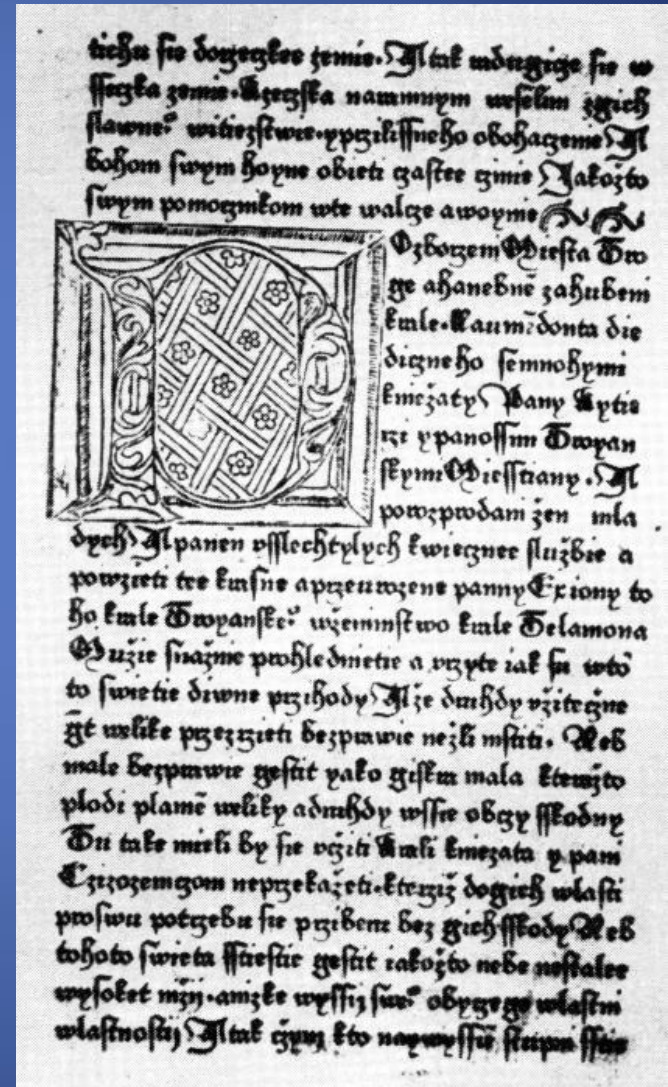 tichu sie dorzeczkee zemie. A tak radugicze sie w
sseczka zemie. Rzeczska naramnym weselim zgich
slawne° witiezstwie. yprzilissneho obohaczenie A
bohom swym hoyne obieti czastee czinie Jakožto
swym pomocznikom wte walcze awoynie
Ozborzem Miesta Tro
ge ahanebne zahubeni
krale. Laumedonta die
diczneho semnohymi
kniežaty Pany Rytie
rzi ypanossmi Troyan
skymi Miesstiany. A
porozprodani žen mla
dych A panen vsslechtylych kwiecznee službie a
powzieti tee krasne aprzeurozene panny Exiony to
ho krale Troyanske° wženimstwo krale Telamona
Mužie snažnie prohledmetie a vzryte iak su wtō
to swietie diwne przihody A že druhdy vžiteczne
gt welike przezrzieti bezprawie nežli mstiti. Neb
male bezprawie gestit yako giskra mala kteražto
plodi plamē weliky adruhdy wssie obczy sskodny
Tu take mieli by sie vcziti Krali kniezata y pani
Czizozemczom neprzekažeti. kterziž dogich wlasti
proswu potrzebu sie prziberu bez gich sskody Neb
tohoto swieta sstiestie gestit iakožto nebe nestalee
wysoket niži. anizke wyssij swe° obyczege wlastni
wlastnostij A tak czym kto naywyssie stupni sstie